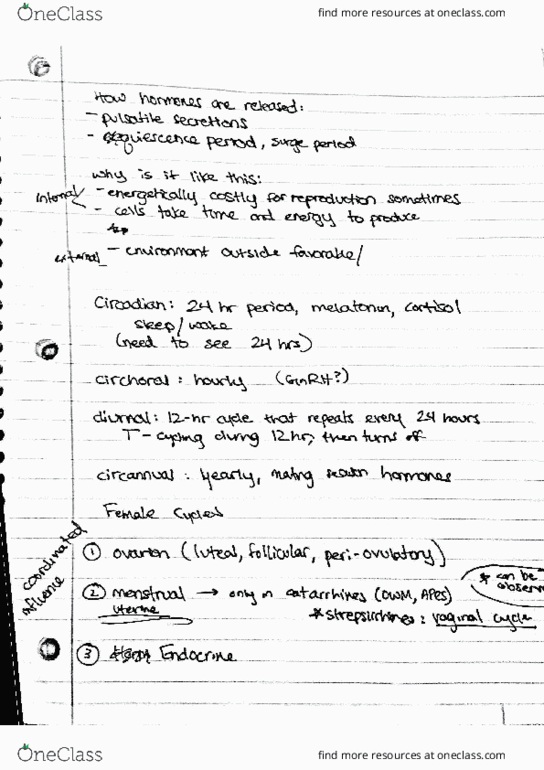 OneClass
find more resources at oneclass.com
How hormones are released:
- pulsatile secretions
- quiescence period, surge period
why is it like this:
internal - energetically costly for reproduction sometimes
- cells take time and energy to produce
external - environment outside favorable/
Circadian: 24 hr period, melatonin, cortisol
sleep/wake
(need to see 24 hrs)
circhoral: hourly (GnRH?)
diurnal: 12-hr cycle that repeats every 24 hours
T - cycling during 12 hr, then turns off
circannual: yearly, mating season hormones
Female Cycles
coordinated influence
① ovarian (luteal, follicular, peri-ovulatory)
② menstrual → only in catarrhines (OWM, APES)
* can be observ
uterine
* strepsirrhines: vaginal cycle
③ Endocrine
OneClass
find more resources at oneclass.com